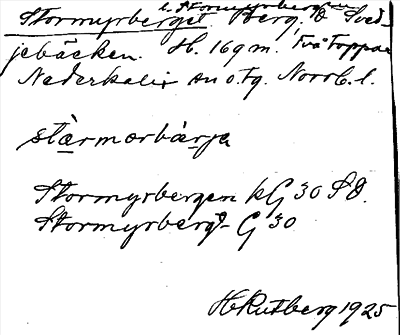 l. Stormyrbergen
Stormyrberget. Berg, O Sved-
jebäcken. H. 169 m. Två toppar
Nederkalix sn o. tg. Norrb. l.
stærmorbærja
Stormyrbergen kG 30 SO.
Stormyrbergt- G 30
H Rutberg 1925